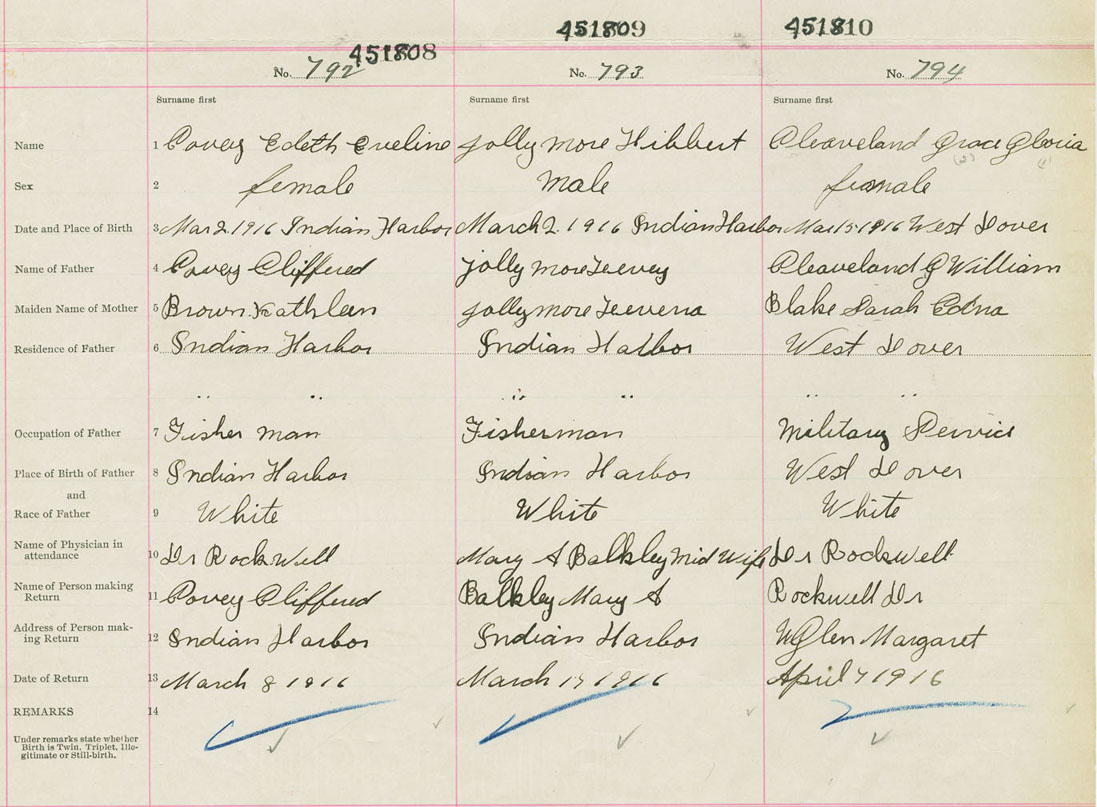 451808 451809 451810
No. 792 No. 793 No. 794
Surname first Surname first Surname first
Name 1 Covey Edeth Eveline Jollymore Hibbert Cleaveland Grace Gloria
(2) (1)
Sex 2 female Male female
Date and Place of Birth 3 Mar 2 1916 Indian Harbor March 2. 1916 Indian Harbor Mar 15 1916 West Dover
Name of Father 4 Covey Cliffered Jollymore Cleaveland G William
Maiden Name of Mother 5 Brown Kathleen Jollymore Blake Sarah Edna
Residence of Father 6 Indian Harbor Indian Harbor West Dover
" " " " " "
Occupation of Father 7 Fisher man Fisherman Military Service
Place of Birth of Father 8 Indian Harbor Indian Harbor West Dover
and
Race of Father 9 White White White
Name of Physician in
attendance 10 Dr Rockwell Mary A Balkley Mid Wife Dr Rockwell
Name of Person making
Return 11 Covey Cliffered Balkley Mary A Rockwell Dr
Address of Person mak-
ing Return 12 Indian Harbor Indian Harbor Glen Margaret
Date of Return 13 March 8 1916 March 17 1916 April 7 1916
REMARKS 14
Under remarks state whether
Birth is Twin, Triplet, Ille-
gitimate or Still-birth.